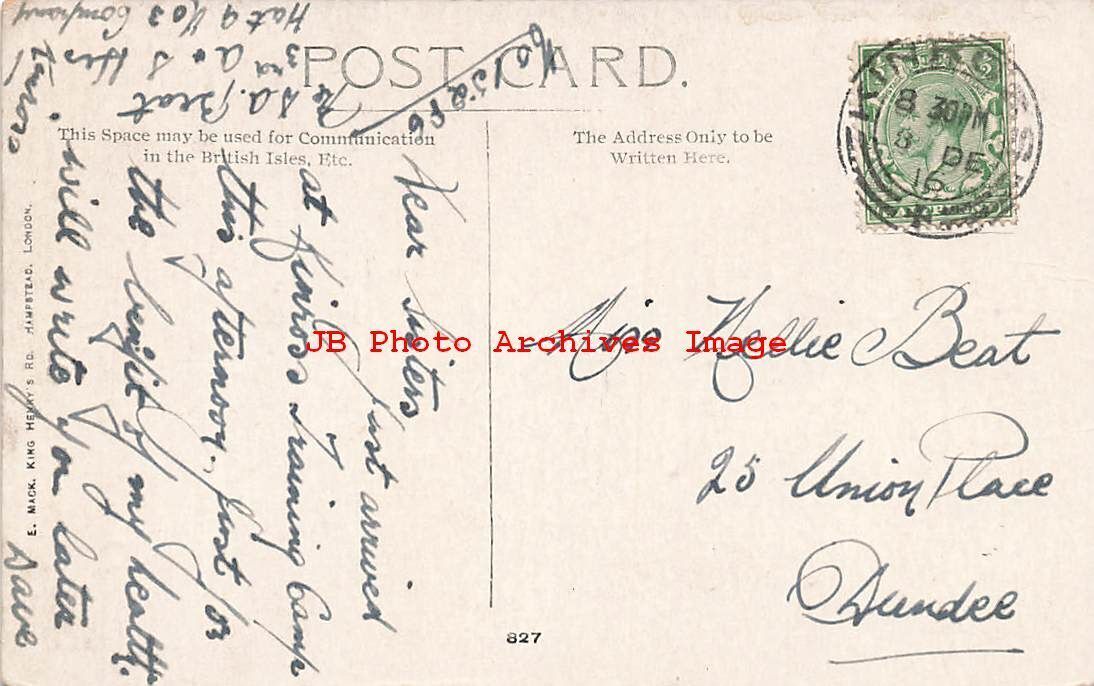 POST CARD.
This Space may be used for Communication
in the British Isles, Etc.
The Address Only to be
Written Here.
8 30PM
8 DE
16
No 15286
Pte D A. Beat
3rd A & S Hrs
Hut 9 Company
Dear Sisters
Just arrived
at Kinross Training Camp
this afternoon. Just for
the benefit of my health.
will write you later
Dave
Miss Nellie Beat
25 Union Place
Dundee
E. MACK, KING HENRY'S RD. HAMPSTEAD, LONDON.
827
JB Photo Archives Image